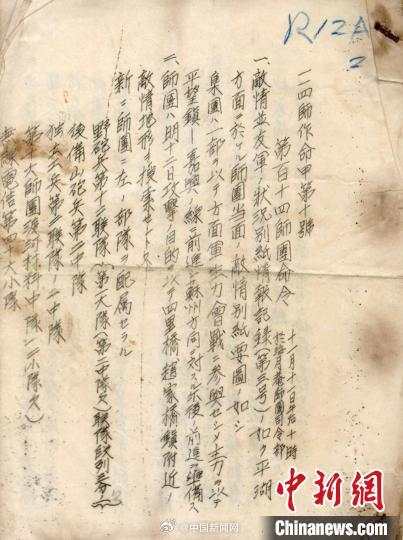 R12A
2
一一四師作命甲第十號
第百十四師團命令
十一月十一日午后十時
師團司令部
一、敵情並友軍ノ狀況別紙情報記錄(第三号)ノ如ク平湖
方面ニ於ケル師團當面ノ敵情別紙要圖ノ如シ
集團ハ一部ヲ以テ方面軍主力會戰ニ參與セシメ主力ヲ以テ
平望鎮、嘉興ノ線ニ前進シ蘇州方向ニ対スル尓後ノ前進ヲ準備ス
二、師團ハ明十二日攻擊ノ目的ヲ以テ四里橋、趙家橋鎮附近ノ
敵情地形ヲ搜索セントス
新ニ師團ニ左ノ部隊ヲ配屬セラル
野砲兵第十二聯隊(第一大隊(第二中隊欠)聯隊段列三分ノ一)
後備山砲兵第二中隊
獨立工兵第二聯隊ノ一中隊
第十六師團渡河材料中隊(二小隊欠)
無線電信第 小隊
@中国新闻网
中新网
Chinanews.com